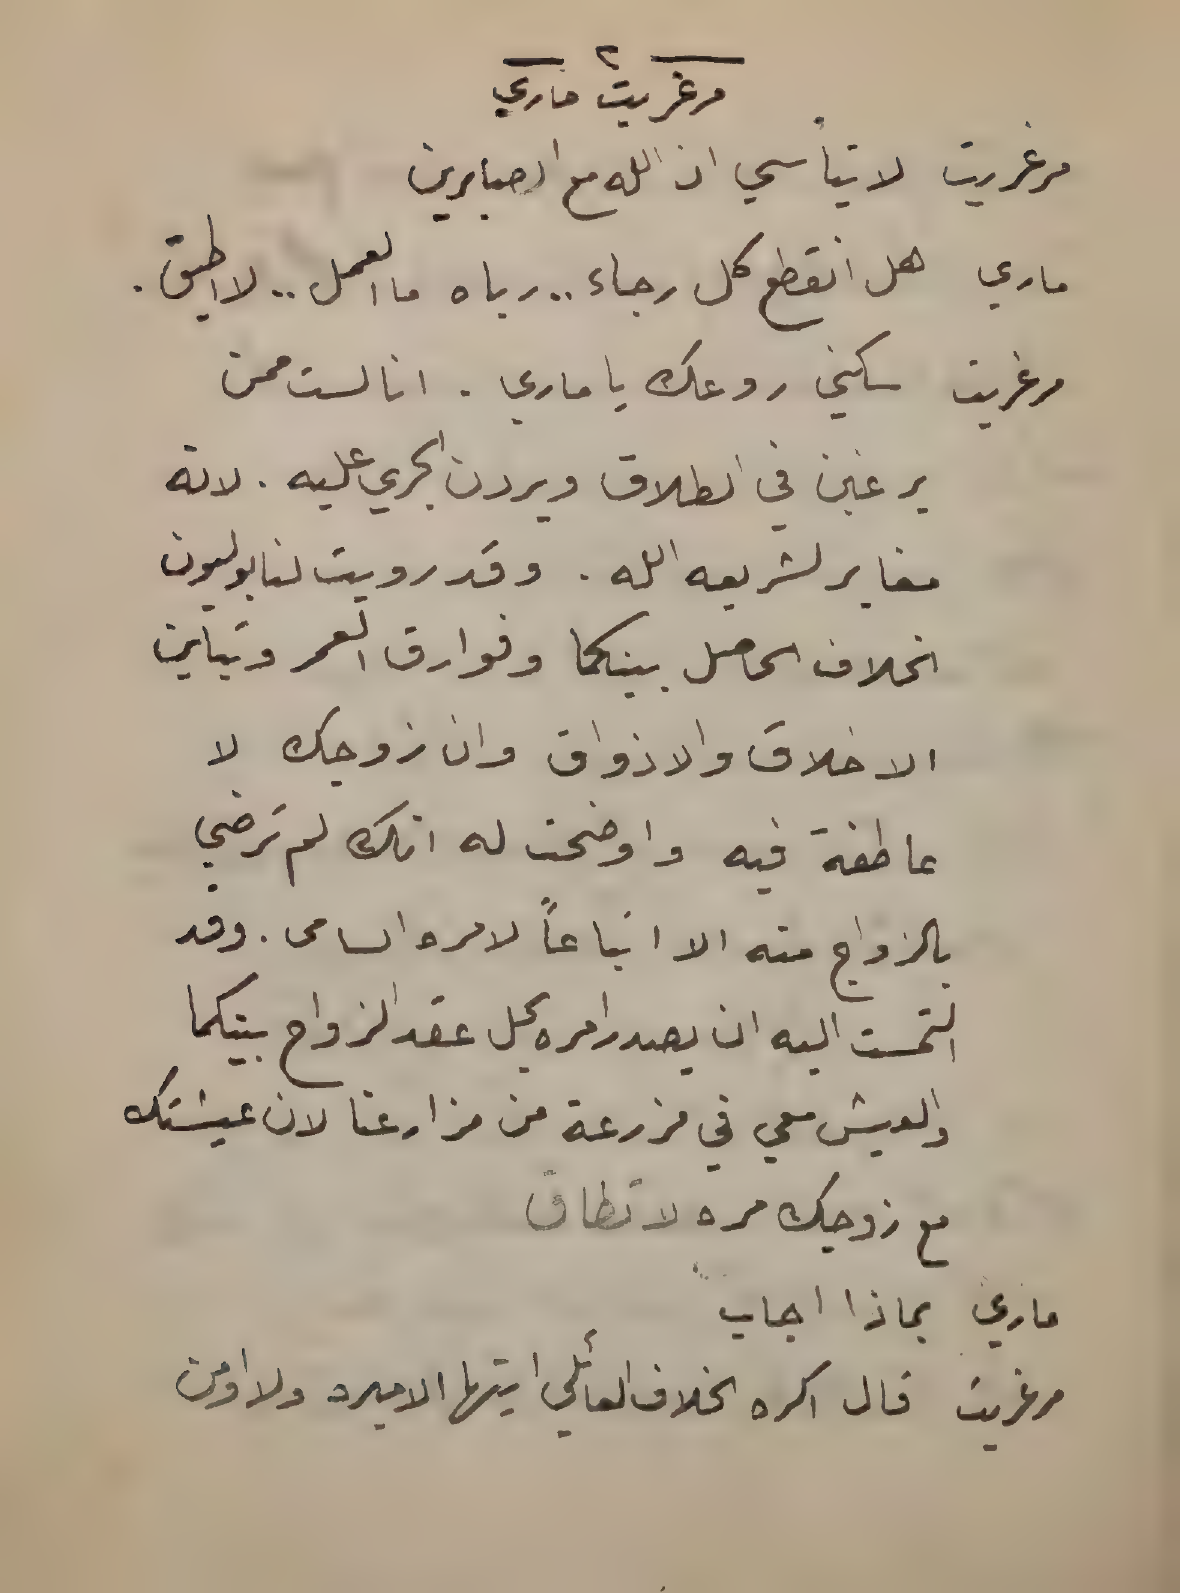 ٢
مرغريت ماري
مرغريت لا تيأسي ان الله مع الصابرين
ماري هل انقطع كل رجاء .. رباه ما العمل .. لا اطيق .
مرغريت سكني روعك يا ماري . انا لست ممن
يرغبن في الطلاق ويردن الجري عليه . لانه
مغاير لشريعه الله . وقد رويت لنابوليون
الخلاف الحاصل بينكما وفوارق العمر وتباين
الاخلاق والاذواق وان زوجك لا
عاطفة فيه واوضحت له انك لم ترضي
بالزواج منه الا اتباعاً لامره السامى . وقد
التمست اليه ان يصدر امره بحل عقد الزواج بينكما
والعيش معي في مزرعة من مزارعنا لان عيشتك
مع زوجك مره لا تطاق
ماري بماذا اجاب
مرغريت قال اكره الخلاف العائلي ايتها الاميره ولا اومن